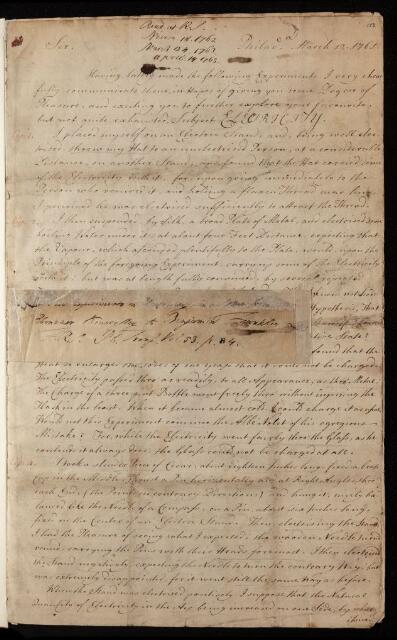 Read at R.S.
Novem 18. 1762
March 24 1763
April 14 1763.
Sir, Philada. March 12. 1761
Having lately made the following Experiments, I very chear-
fully communicate them, in Hopes of giving you some Degree of
Pleasure, and exciting you to further explore your favourite,
but not quite exhausted, Subject, ELECTRICITY.
I placed myself on an Electric Stand, and, being well elec-
trised, threw my Hat to an unelectrised Person, at a considerable
Distance, on another Stand, and found that the Hat carried some
of the Electricity with it; for, upon going immediately to the
Person who received it, and holding a flaxen Thread near him,
I perceived he was electrised sufficiently to attract the Thread.
I then suspended, by Silk, a broad Plate of Metal, and electrised some
boiling Water under it, at about four Feet Distance, expecting that
the Vapour, which ascended plentifully to the Plate, would, upon the
Principle of the foregoing Experiment, carry up some of the Electricity
with it; but was at length fully convinced, by several repeated
Experiments in Electricity in a Letter from
Ebenezer Kinnersley to Benjamin Franklin
Ph. Trans. Vol 53. p. 84.
found that the
Heat so enlarges the Pores of the Glass that it could not be charged.
The Electricity passes thro as readily, to all Appearance, as thro Metal;
The Charge of a three pint Bottle went freely thro without injuring the
Flask in the least. When it became almost cold I could charge it as usual.
Would not this Experiment convince the Abbe Nolet of his egregious
Mistake? For, while the Electricity went fairly thro the Glass, as he
contends it always does, the Glass could not be charged at all.
I took a slender Piece of Cedar, about eighteen Inches long, fixed a brass
Cap in the Middle, thrust a Pin, horizontally and at Right Angles, thro
each End, (the Points in contrary Directions) and hung it, nicely ba-
lanced like the Needle of a Compass, on a Pin, about six Inches long,
fixed in the Centre of an Electric Stand. Then, electrising the Stand
I had the Pleasure of seeing what I expected; the wooden Needle turn'd
round, carrying the Pins with their Heads foremost. I then electrised
the Stand negatively, expecting the Needle to turn the contrary Way, but
was extremely disappointed, for it went still the same Way as before.
When the Stand was electrised positively, I suppose that the Natural
Quantity of Electricity in the Air being increased on one Side, by what